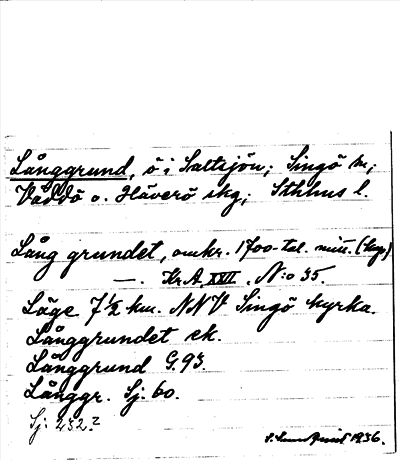 Långgrund, ö i Saltsjön; Singö sn;
Väddö o. Häverö skg; Sthlms l.
Lång grundet, omkr. 1700-tal. mitt. (kop.)
—. Kr.A XXVI. N:o 35.
Läge 7½ km. NNV Singö kyrka.
Långgrundet ek.
Långgrund G.93.
Långgr. Sj. 60.
Sj. 232?
1936.